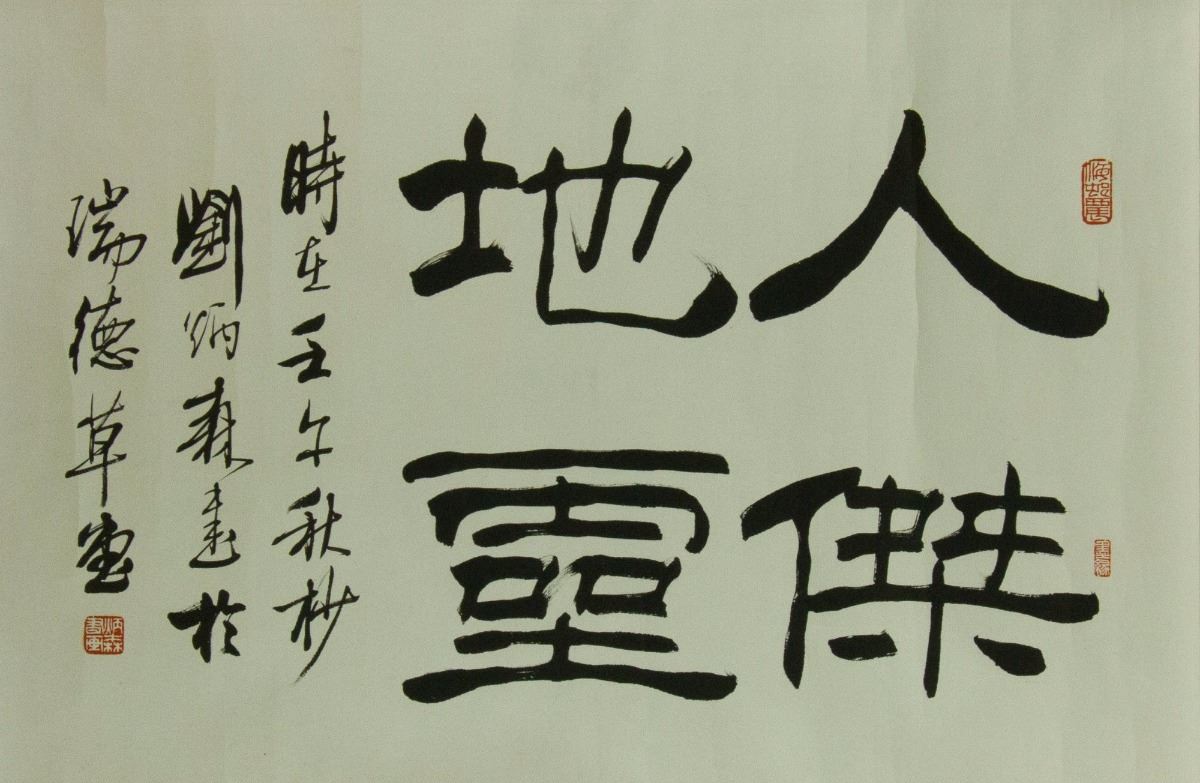 人傑
地靈
時在壬午秋杪
劉炳森書於
瑞德草堂
炳森
書画